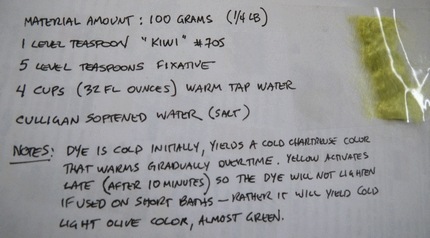 MATERIAL AMOUNT : 100 GRAMS (1/4 LB)
1 LEVEL TEASPOON "KIWI" #705
5 LEVEL TEASPOONS FIXATIVE
4 CUPS (32 FL OUNCES) WARM TAP WATER
CULLIGAN SOFTENED WATER (SALT)
NOTES: DYE IS COLD INITIALLY, YIELDS A COLD CHARTREUSE COLOR
THAT WARMS GRADUALLY OVERTIME. YELLOW ACTIVATES
LATE (AFTER 10 MINUTES) SO THE DYE WILL NOT LIGHTEN
IF USED ON SHORT BATHS — RATHER IT WILL YIELD COLD
LIGHT OLIVE COLOR, ALMOST GREEN.